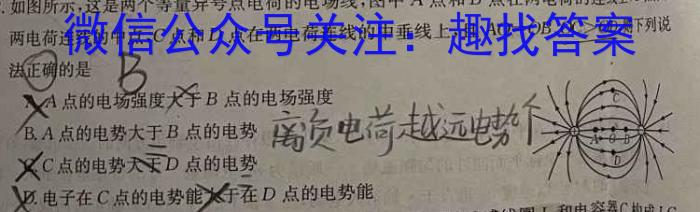 .如图所示,这是两个等量异号点电荷的电场线,图中 A 点和 B 点在两电荷的连线上
两电荷连线的中点,C 点和 D 点在两电荷连线的中垂线上,且 AO=OB 下列说
微信公众号关注：趣找答案
法正确的是
B
A. A 点的电场强度大于 B 点的电场强度
B. A 点的电势大于 B 点的电势
离负电荷越远电势个
C. C 点的电势大于 D 点的电势
D. 电子在 C 点的电势能大于在 D 点的电势能
C
A O B
D
和电容器C构成LC